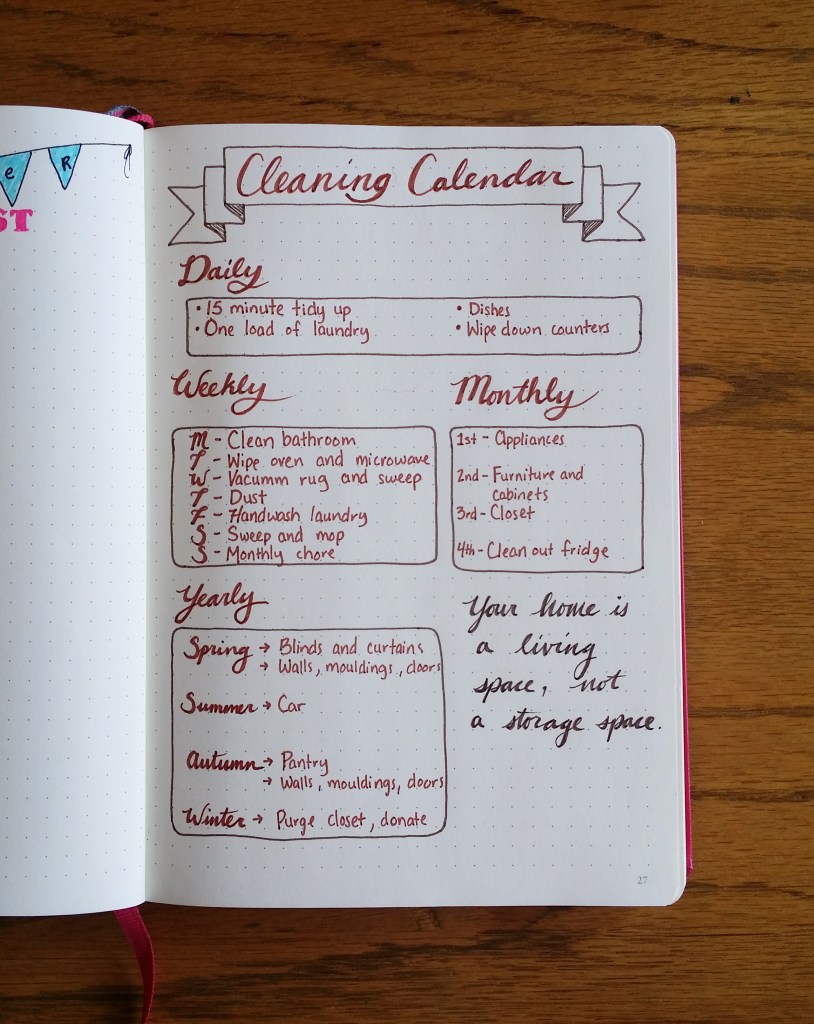 e R
ST
Cleaning Calendar
Daily
• 15 minute tidy up
• One load of laundry
• Dishes
• Wipe down counters
Weekly
M - Clean bathroom
T - Wipe oven and microwave
W - Vacumm rug and sweep
T - Dust
F - Handwash laundry
S - Sweep and mop
S - Monthly chore
Monthly
1st - Appliances
2nd - Furniture and
cabinets
3rd - Closet
4th - Clean out fridge
Yearly
Spring → Blinds and curtains
→ Walls, mouldings, doors
Summer → Car
Autumn → Pantry
→ Walls, mouldings, doors
Winter → Purge closet, donate
Your home is
a living
space, not
a storage space.
27